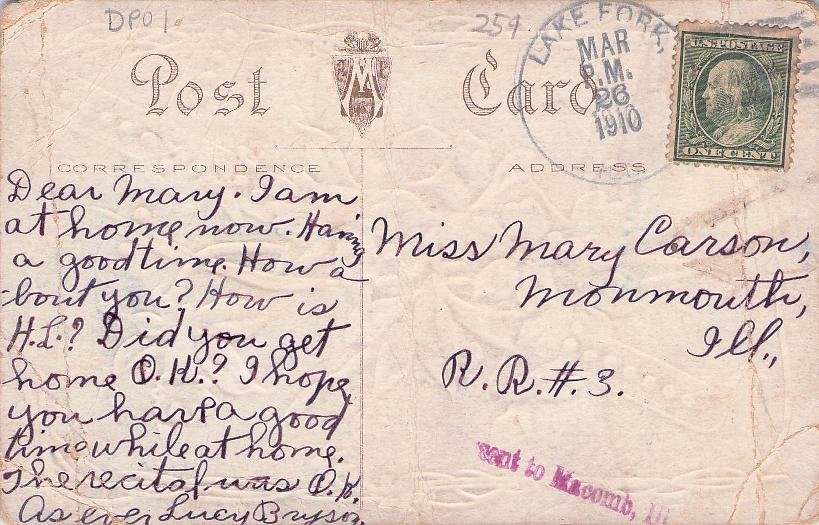 DPO1
254
LAKE FORK,
MAR
P.M.
26
1910
U.S. POSTAGE
2
ONE CENT
Post Card
CORRESPONDENCE
ADDRESS
Dear Mary. I am
at home now. Having
a good time. How a
-bout you? How is
H.L.? Did you get
home O.K.? I hope
you have a good
time while at home.
The recital was O.K.
As ever Lucy Bryson.
Miss Mary Carson,
Monmouth,
Ill.,
R.R.#.3.
sent to Macomb, Ill